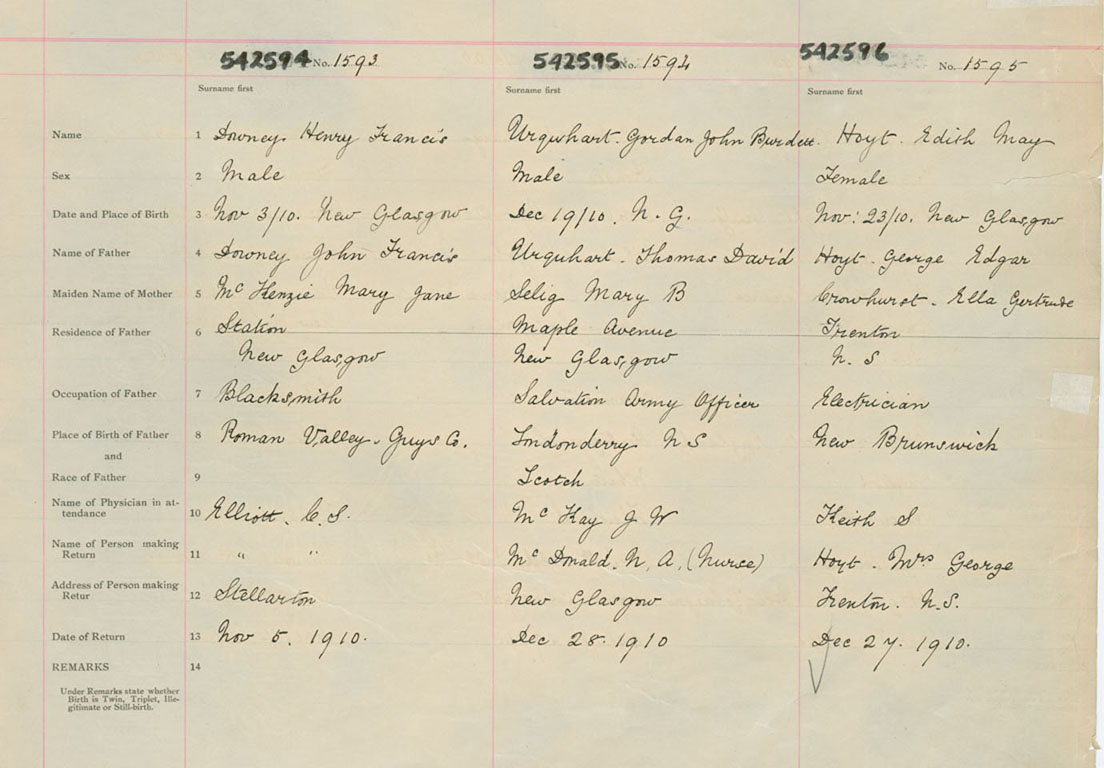 542594 No. 1593 542595 No. 1594 542596 No. 1595
Surname first Surname first Surname first
Name 1 Downey, Henry Francis Urquhart. Gordan John Burdett. Hoyt. Edith May
Sex 2 Male Male Female
Date and Place of Birth 3 Nov 3/10. New Glasgow Dec 19/10. N. G. Nov: 23/10. New Glasgow
Name of Father 4 Downey John Francis Urquhart. Thomas David Hoyt. George Edgar
Maiden Name of Mother 5 Mc Kenzie Mary Jane Selig Mary B Crowhurst. Ella Gertrude
Residence of Father 6 Station Maple Avenue Trenton
New Glasgow New Glasgow N. S
Occupation of Father 7 Blacksmith Salvation Army Officer Electrician
Place of Birth of Father 8 Roman Valley. Guys Co. Londonderry N S New Brunswick
and
Race of Father 9 Scotch
Name of Physician in at-
tendance 10 Elliott. C. S. Mc Kay J W Keith S
Name of Person making
Return 11 " " Mc Donald. N. A. (Nurse) Hoyt. Mrs George
Address of Person making
Retur 12 Stellarton New Glasgow Trenton. N.S.
Date of Return 13 Nov 5. 1910. Dec 28. 1910 Dec 27. 1910.
REMARKS 14
Under Remarks state whether
Birth is Twin, Triplet, Ille-
gitimate or Still-birth.